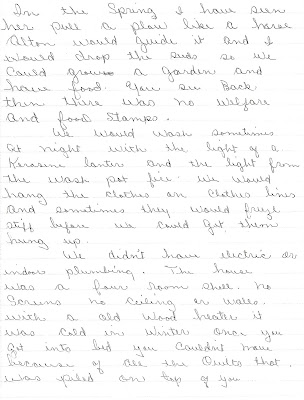 In the Spring I have seen
her pull a plow like a horse
Alton would guide it and I
would drop the seds so we
Could grow a garden and
have food. You see Back
then there was no welfare
and food Stamps.
We would wash sometimes
at night with the light of a
Kerosine lanter and the light from
the wash pot fire. we would
hang the clothes on clothes lines
and sometimes they would freze
stiff before we could get them
hung up.
We didn't have electric or
indoors plumbing. The house
was a four room shell. no
Screens no ceiling or wales.
with a old wood heater it
was cold in winter once you
got into bed you couldn't move
because of all the Quilts that
was piled on top of you